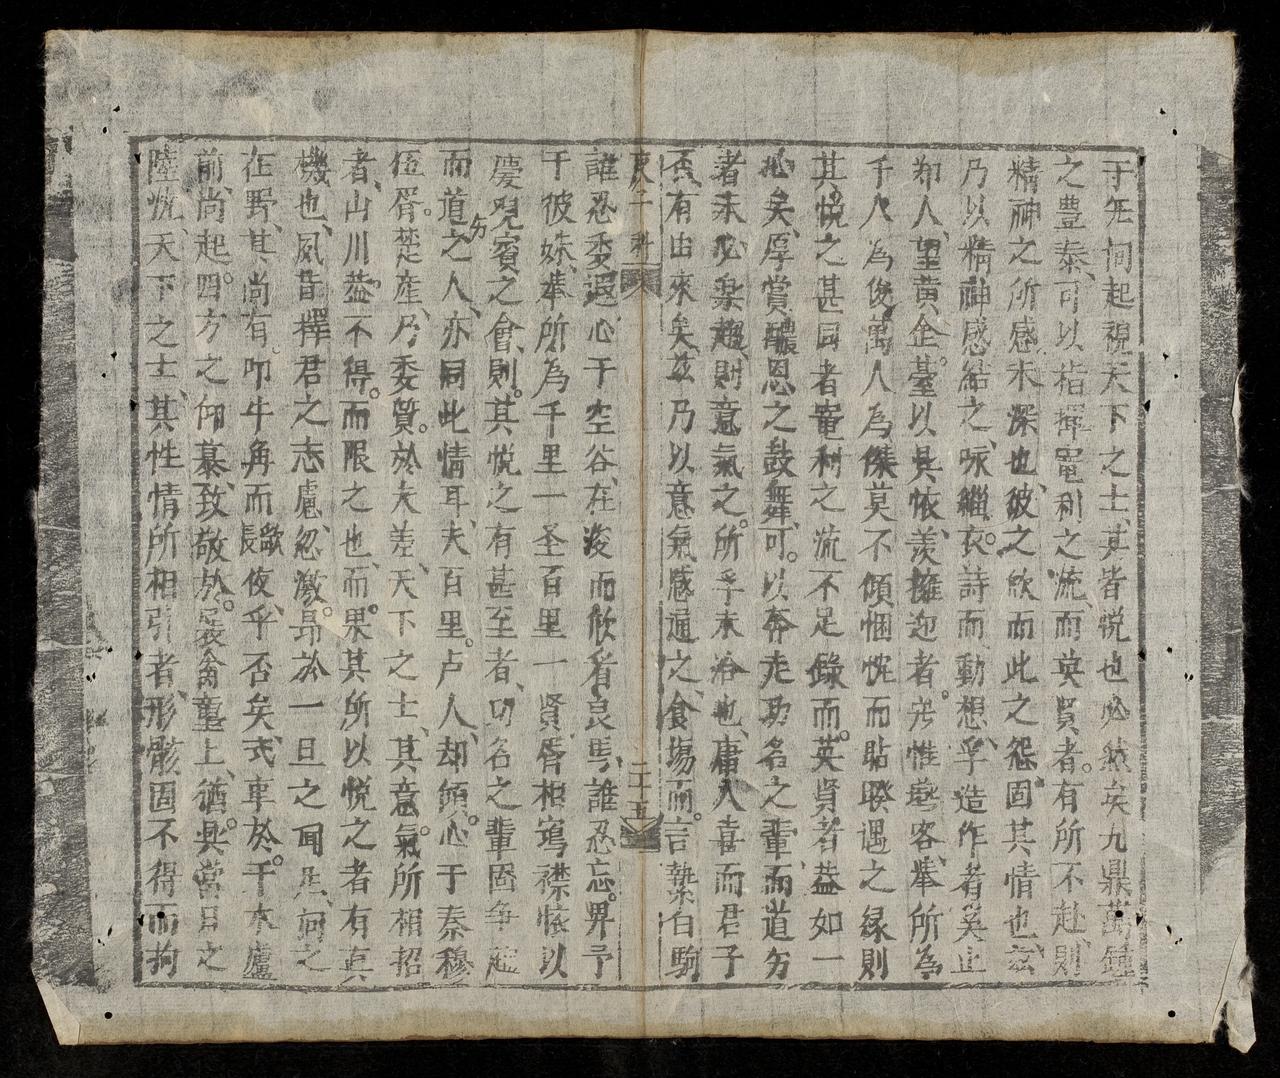 于先伺起視天下之士其皆悦也必然矣九鼎萬鍾
之豊泰可以指揮寵利之流而英賢者有所不赴則
精神之所感未深也彼之欣而此之怨固其情也玆
乃以精神感結之咏緇衣詩而動想孚造作者奚止
却人望黄金臺以具恢羡擁迎者旁惟燕客奉所為
千人為俊萬人為傑莫不傾悃忱而貼睽遇之緣則
其悦之甚同者寵利之流不足錄而英賢者益如一
心矣厚賞醲恩之鼓舞可以奔走功名之輩而道穷
者未必樂趨則意氣之所孚未洽也庸人喜而君子
否有由來矣玆乃以意氣感通之食塲而言縶白駒
二十五
誰忍委遐心于空谷在浚而欣看良馬誰忍忘畀予
于彼姝奉所為千里一圣百里一賢唇相寫襟懐以
慶覌賔之會則其悦之有甚至者功名之輩固争趍
而道穷之人亦同此情耳夫百里卢人却傾心于秦穆
伍胥楚產乃委質於夫差天下之士其意氣所相招
者山川益不得而限之也而果其所以悦之者有真
機也夙昔擇君之志慮忽激昂於一旦之聞具何之
在野其尚有叩牛角而長歌夜乎否矣式車於千木廬
前尚起四方之仰慕致敬於裴禽臺上猶具當日之
陸恍天下之士其性情所相引者形骸固不得而拘